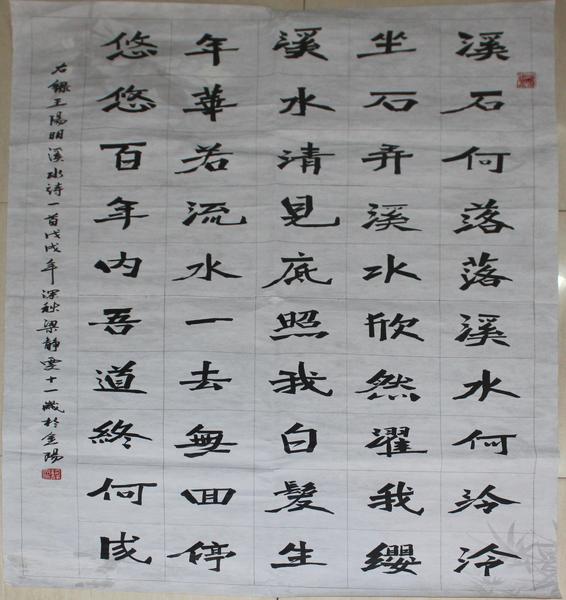 溪石何落落溪水何泠泠
坐石弄溪水欣然濯我纓
溪水清見底照我白髮生
年華若流水一去無回停
悠悠百年内吾道終何成
右錄王陽明溪水诗一首戊戌年深秋梁靜雯十一歲於金陽